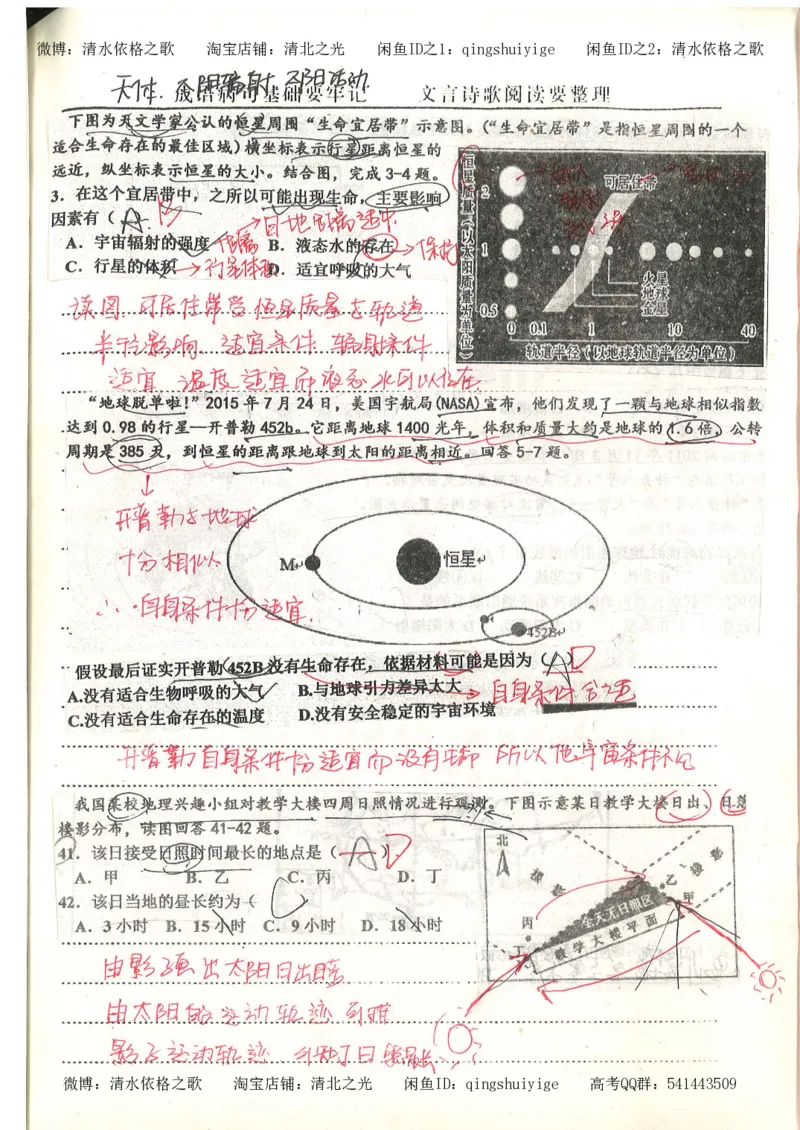 微博：清水依格之歌 淘宝店铺：清北之光 闲鱼ID之1：qingshuiyige 闲鱼ID之2：清水依格之歌
天体. 太阳辐射 太阳活动
成语病句基础要牢记 文言诗歌阅读要整理
下图为天文学家公认的恒星周围“生命宜居带”示意图。(“生命宜居带”是指恒星周围的一个
适合生命存在的最佳区域)横坐标表示行星距离恒星的
远近，纵坐标表示恒星的大小。结合图，完成3-4题。
3．在这个宜居带中，之所以可能出现生命，主要影响
因素有（ A B
日地距离适中
A．宇宙辐射的强度 B．液态水的存在
C．行星的体积 行星体积 D．适宜呼吸的大气
恒星质量（以太阳质量为单位）
可居住带
2
1
0.5
火星
地球
金星
0 0.1 1 10 40
轨道半径（以地球轨道半径为单位）
读图 可居住带受恒星质量与轨道
半径影响. 适宜条件 辐射条件
适宜 温度适宜而液态水可以存在.
“地球脱单啦!”2015年7月24日，美国宇航局(NASA)宣布，他们发现了一颗与地球相似指数
达到0.98的行星—开普勒452b。它距离地球1400光年，体积和质量大约是地球的1.6倍，公转
周期是385天，到恒星的距离跟地球到太阳的距离相近。回答5-7题。
开普勒与地球
十分相似
∴自身条件十分适宜.
M
恒星
452B
假设最后证实开普勒452B没有生命存在，依据材料可能是因为（ A ）D
A.没有适合生物呼吸的大气 B.与地球引力差异太大 自身条件
C.没有适合生命存在的温度 D.没有安全稳定的宇宙环境
开普勒自身条件十分适宜而没有生命 所以他宇宙条件不行
我国某校地理兴趣小组对教学大楼四周日照情况进行观测。下图示意某日教学大楼日出、日落
楼影分布，读图回答41-42题。
41．该日接受日照时间最长的地点是（ A ）D
A．甲 B．乙 C．丙 D．丁
42．该日当地的昼长约为（ C
A．3小时 B．15小时 C．9小时 D．18小时
北
楼影
楼影
乙
甲
全天无日照区
丙
教学大楼平面
丁
由影子画出太阳日出时
由太阳的运动轨迹 判断
影子运动轨迹
微博：清水依格之歌 淘宝店铺：清北之光 闲鱼ID：qingshuiyige 高考QQ群：541443509